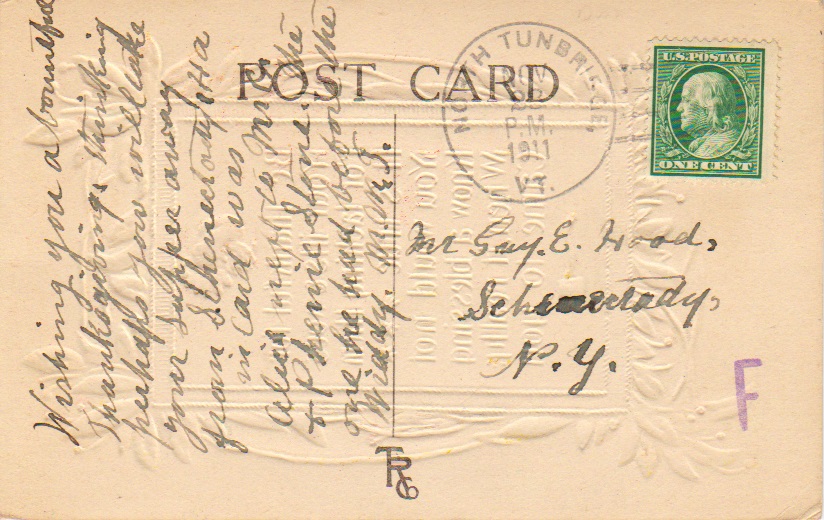 POST CARD
NORTH TUNBRIDGE,
NOV
P.M.
1911
VT.
U.S. POSTAGE
ONE CENT
Wishing you a bountiful
Thanksgiving. thinking
perhaps you will take
your supper away
from Schenectady, Ha
card was
Alice went to Mrs
+ Phemie Stone. the
one he had before the
Widdy. M.M.T.
Mr Guy. E. Wood,
Schenectady,
N. Y.
F